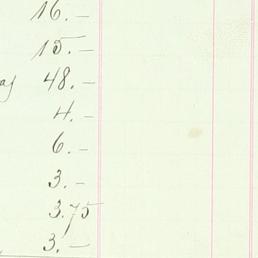 16.-
15.-
48.-
4.-
6.-
3.-
3.75
3.-